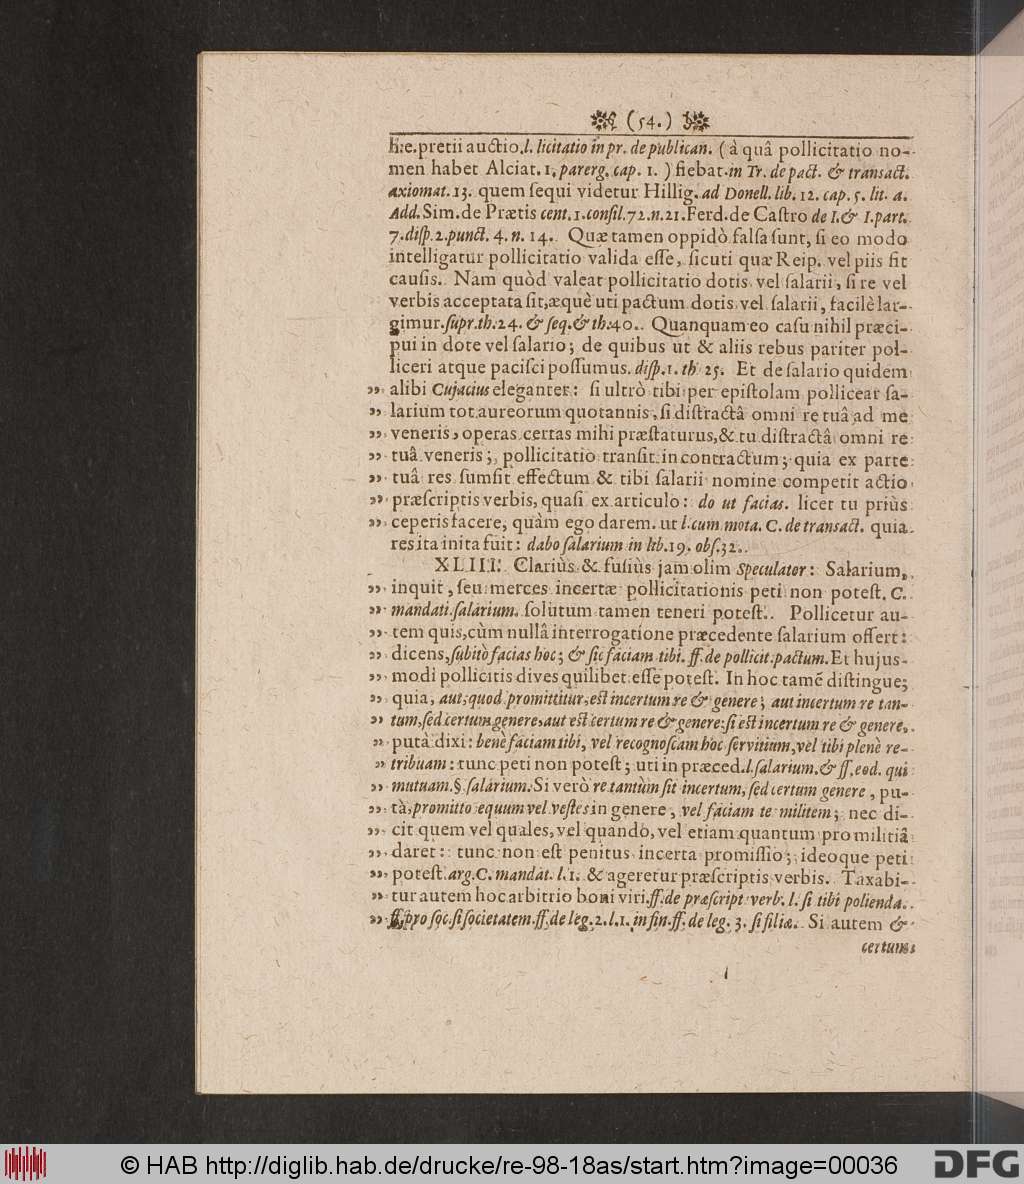 (54.)
h.e. pretii auctio. l. licitatio in pr. de publican. ( à quâ pollicitatio no-
men habet Alciat. 1. parerg. cap. 1. ) fiebat. in Tr. de pact. & transact.
axiomat. 13. quem ſequi videtur Hillig. ad Donell. lib. 12. cap. 5. lit. a.
Add. Sim. de Prætis cent. 1. conſil. 72. n. 21. Ferd. de Caſtro de I. & I. part.
7. diſp. 2. punct. 4. n. 14. Quæ tamen oppidò falſa ſunt, ſi eo modo
intelligatur pollicitatio valida eſſe, ſicuti quæ Reip. vel piis fit
cauſis. Nam quòd valeat pollicitatio dotis vel ſalarii, ſi re vel
verbis acceptata ſit, æquè uti pactum dotis vel ſalarii, facilè lar-
gimur. ſupr. th. 24. & ſeq. & th. 40. Quanquam eo caſu nihil præci-
pui in dote vel ſalario; de quibus ut & aliis rebus pariter pol-
liceri atque paciſci poſſumus. diſp. 1. th. 25. Et de ſalario quidem
„ alibi Cujacius eleganter: ſi ultrò tibi per epiſtolam pollicear ſa-
„ larium tot aureorum quotannis, ſi diſtractâ omni re tuâ ad me
„ veneris, operas certas mihi præſtaturus, & tu diſtractâ omni re
„ tuâ veneris; pollicitatio tranſit in contractum; quia ex parte
„ tuâ res ſumſit effectum & tibi ſalarii nomine competit actio
„ præſcriptis verbis, quaſi ex articulo: do ut facias. licet tu priùs
„ ceperis facere, quàm ego darem. ut l. cum mota. C. de transact. quia
res ita inita fuit: dabo ſalarium in lib. 19. obſ. 32.
XLIII. Clariùs & fuſiùs jam olim Speculator: Salarium,
„ inquit, ſeu merces incertæ pollicitationis peti non poteſt. C.
„ mandati. ſalarium. ſolutum tamen teneri poteſt. Pollicetur au-
„ tem quis, cùm nullâ interrogatione præcedente ſalarium offert:
„ dicens, ſubitò facias hoc; & ſic faciam tibi. ff. de pollicit. pactum. Et hujus-
„ modi pollicitis dives quilibet eſſe poteſt. In hoc tamē diſtingue;
„ quia, aut quod promittitur, eſt incertum re & genere; aut incertum re tan-
„ tum, ſed certum genere, aut eſt certum re & genere: ſi eſt incertum re & genere,
„ putà dixi: benè faciam tibi, vel recognoſcam hoc ſervitium, vel tibi plenè re-
„ tribuam: tunc peti non poteſt; uti in præced. l. ſalarium. & ff. eod. qui
„ mutuam. §. ſalarium. Si verò re tantùm ſit incertum, ſed certum genere, pu-
„ tà, promitto equum vel veſtes in genere, vel faciam te militem; nec di-
„ cit quem vel quales, vel quando, vel etiam quantum pro militiâ
„ daret: tunc non eſt penitus incerta promiſſio; ideoque peti
„ poteſt. arg. C. mandat. l. 1. & ageretur præſcriptis verbis. Taxabi-
„ tur autem hoc arbitrio boni viri. ff. de præſcript. verb. l. ſi tibi polienda.
„ ff. pro ſoc. ſi ſocietatem. ff. de leg. 2. l. 1. in fin. ff. de leg. 3. ſi filiæ. Si autem &
certum
© HAB http://diglib.hab.de/drucke/re-98-18as/start.htm?image=00036
DFG